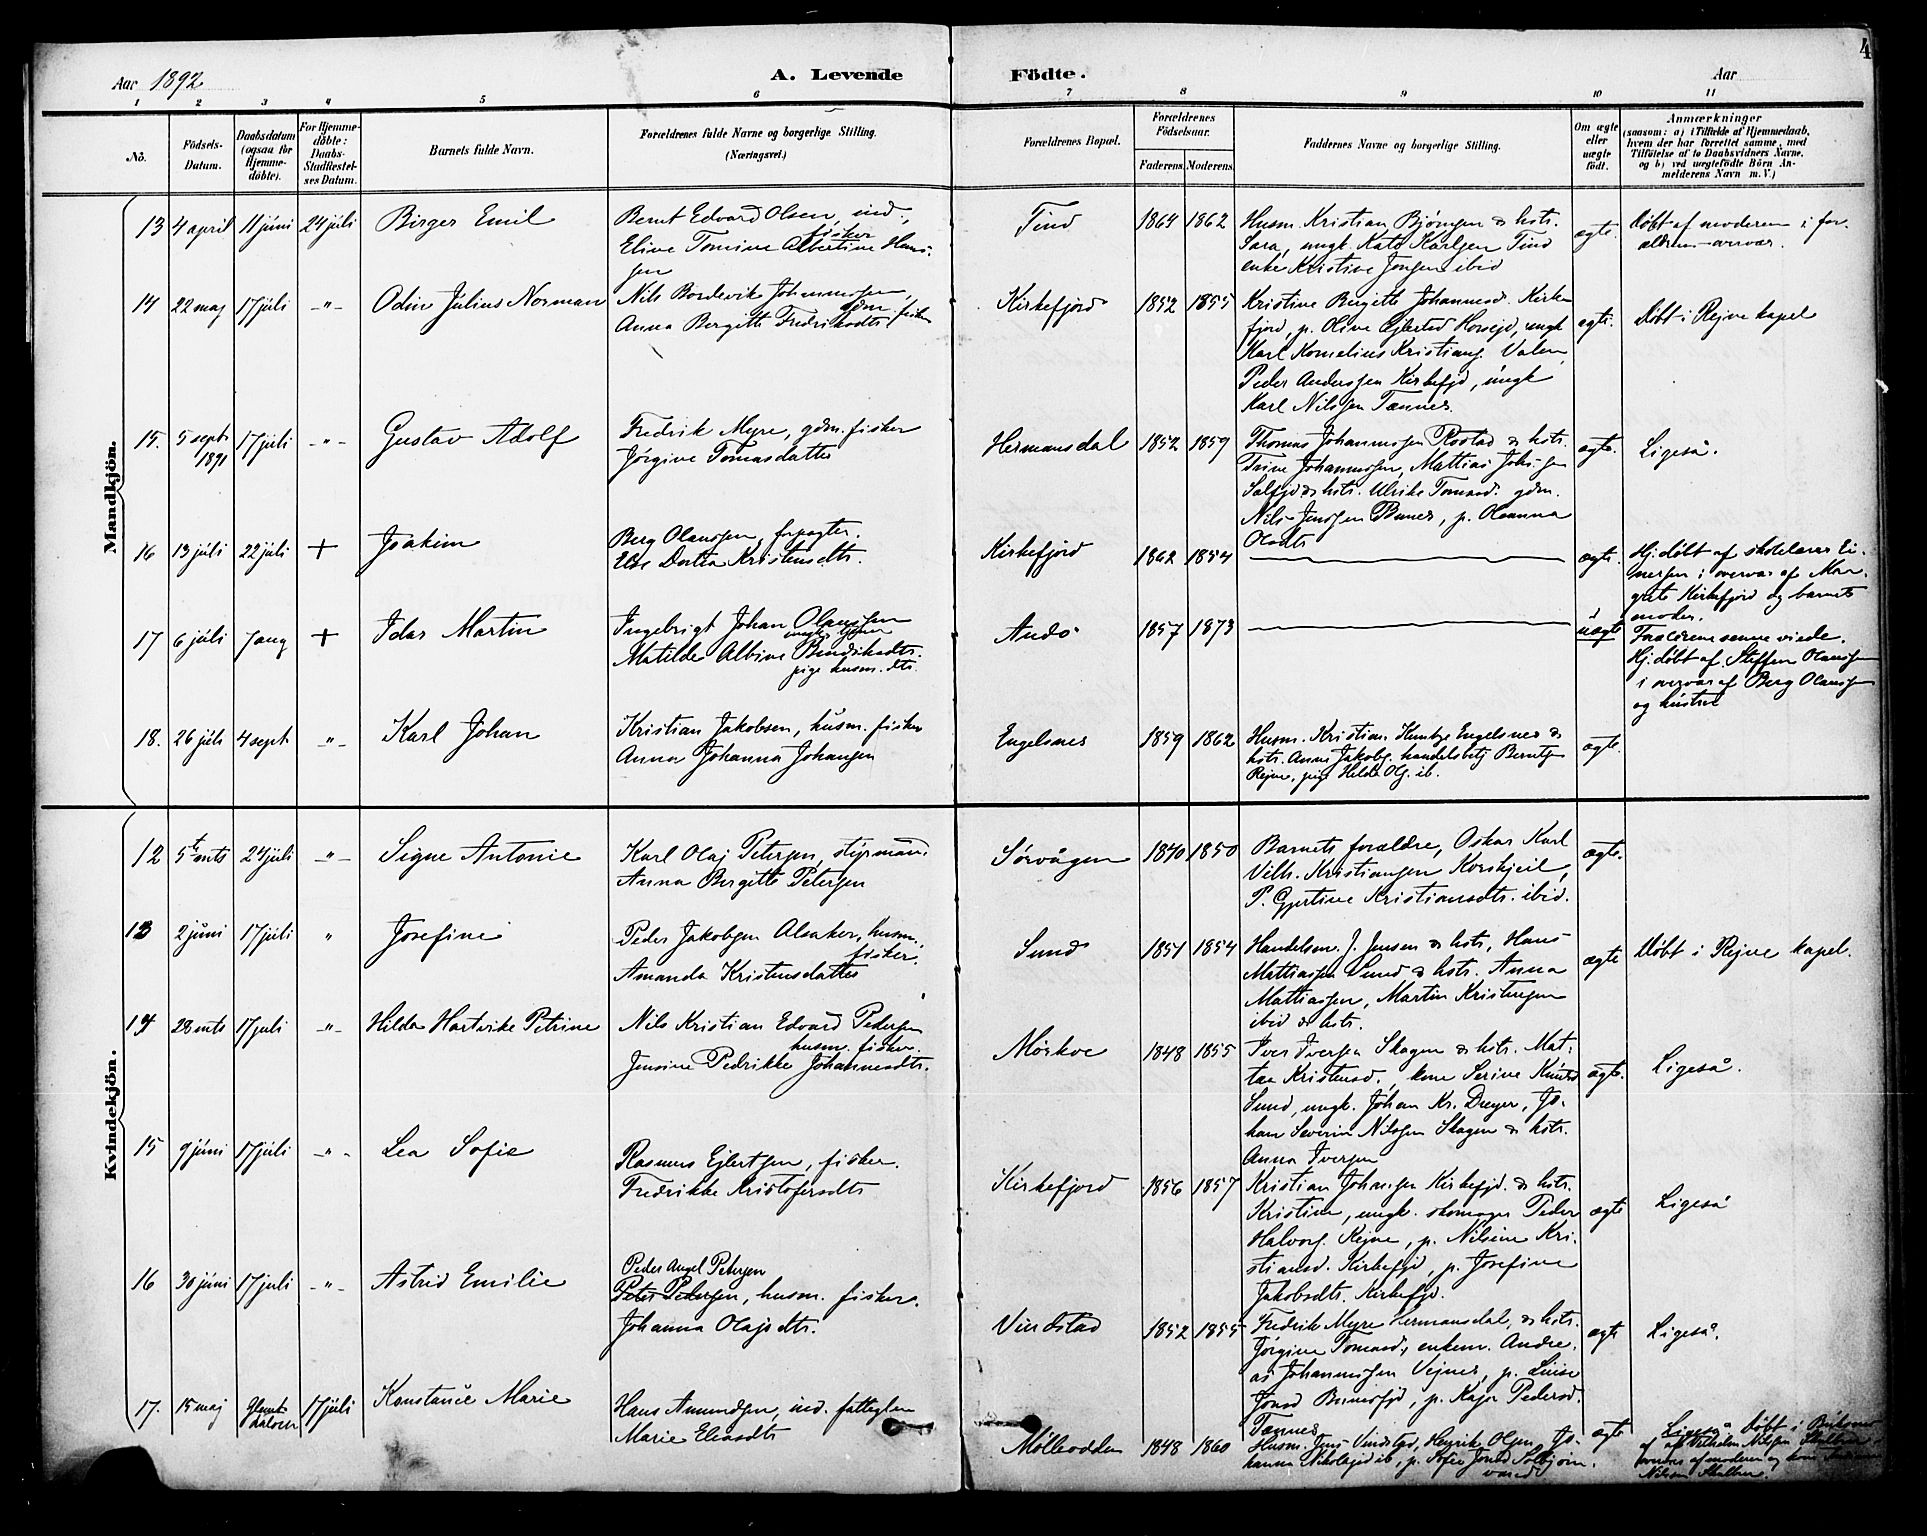 4
Aar 1892
A. Levende Födte.
Aar
1 2 3 4 5 6 7 8 9 10 11
Nō.
Födsels-
Datum.
Daabsdatum
(ogsaa for
Hjemme-
döbte).
For Hjemme-
döbte:
Daabs-
Stadfæstel-
ses Datum.
Barnets fulde Navn.
Forældrenes fulde Navne og borgerlige Stilling.
(Næringsvei.)
Forældrenes Bopæl.
Forældrenes
Födselsaar.
Faderens. Moderens.
Faddernes Navne og borgerlige Stilling.
Om ægte
eller
uægte
födt.
Anmærkninger
(saasom: a) i Tilfælde af Hjemmedaab,
hvem der har forrettet samme, med
Tilföielse af to Daabsvidners Navne,
og b) ved uægtefödte Börn An-
melderens Navn m. V.)
Mandkjön.
13 4 april 11 juni 24 juli Birger Emil
Bernt Edvard Olsen, ind.,
fisker
Eline Tomine Albertine Hans-
sen
Tind 1864 1862
Husm. Kristian Bjöngen & hstr.
Sara, ungk. Kato Karlsen Tind
enke Kristine Jonsen ibid
ægte.
Döbt af moderen i for-
ældrenes overvær.
14 22 maj 17 juli -"- Odin Julius Norman
Nils Bordevik Johannessen,
gdm. fisker
Anna Bergitte Fredriksdtr
Kirkefjord 1852 1855
Kristine Birgitte Johannesd. Kirke-
fjord, p. Oline Ejlertsd Horsejd, ungk
Karl Kornelius Kristians. Valen,
Peder Anderssen Kirkefjd, ungk
Karl Nilssen Tennes.
ægte.
Döbt i Rejne kapel
15. 5 septr 1891 17 juli -"- Gustav Adolf
Fredrik Myre, gdm. fisker
Jörgine Tomasdatter
Hermansdal 1852 1859
Thomas Johannessen Rostad & hstr.
Trine Johannessen, Mattias Johs-sen
Solfjd & hstr. Ulrike Tomasd. gdm.
Nils Jenssen Bunes, p. Oleanna
Olsdtr
ægte.
Ligeså.
16 13 juli 22 juli + Joakim
Berg Olaussen, forpagter.
Else Dortea Kristensdtr.
Kirkefjord 1862 1854
ægte.
Hj. döbt af skolelærer Ei-
nersen i overvær af Mar-
grete Kirkefjord og barnets
moder.
17 6 juli 7 aug + Idar Martin
Ingebrigt Johan Olaussen
Matilde Albine Bendiksdtr.
pige husm. dtr.
Andö 1857 1873
uægte
Forældrene senere viede.
Hj. döbt af Steffen Olaussen
i overvær af Berg Olaussen
og hustru
18. 26 juli 4 sept. -"- Karl Johan
Kristian Jakobsen, husm. fisker
Anna Johanna Johansen
Engelsnes 1859 1862
Husm. Kristian Engelsnes &
hstr. Anna Jakobs. handelsbetj Berntsen
Rejne, pige Hilda Ols. ib.
ægte.
Kvindekjön.
12 24 juli -"- Signe Antonie
Karl Olaj Petersen, styrmand.
Anna Bergitte Petersen
Sörvågen 1840 1850
Barnets forældre, Oskar Karl
Vilh. Kristiansen
P. Gjertine Kristiansdtr. ibid.
ægte.
13 2 juni 17 juli " Josefine
Peder Jakobsen Alsaker, husm.,
fisker.
Amanda Kristensdatter
Sund 1851 1854
Handelsm. J. Jensen & hstr., Hans
Mattiassen Sund & hstr. Anna
Mattiassen, Martin Kristensen
ibid & hstr.
ægte
Döbt i Rejne kapel.
14 28 mts 17 juli -"- Hilda Hartvike Petrine
Nils Kristian Edvard Pedersen
husm. fisker.
Jensine Pedrikke Johannesdtr.
Mörkve 1848 1855
Iver Iversen Skagen & hstr. Mat-
tea Kristensd., kone Serine Knutsd
Sund, ungk. Johan Kr. Dreyer, Jo-
han Severin Nilssen Skagen & hstr.
Anna Iversen
ægte.
Ligeså.
15 9 juni 17 juli -"- Lea Sofie
Rasmus Ejlertsen, fisker.
Fredrikke Kristofersdtr
Kirkefjord 1856 1857
Kristian Johansen Kirkefjd. & hstr.
Kristine, ungk. skomager Peder
Halvors. Rejne, p. Nilsine Kri-
stiansd. Kirkefjd, p. Josefine
Jakobsdtr. Kirkefjd.
ægte
Ligeså
16 30 juni 17 juli -"- Astrid Emilie
Peder Angel Petersen
Peter Petersen, husm. fisker.
Johanna Olajsdtr.
Vindstad 1852 1855
Fredrik Myre Hermansdal, & hstr.
Jörgine Tomasd., enkem. Andre-
as Johannessen Vejnes, p. Luise
Jonsd Bunesfjd, p. Kaja Pedersd.
Tennes
ægte
Ligeså.
17. 15 maj 17 juli Konstance Marie
Hans Amundsen, ind. fattiglem
Marie Eliasdtr
Mölleodden 1848 1860
Husm. Jens Vindstad, Henrik Olsen, Jo-
hanna Nikolajsd ib, p. Sofie Jonsd
ægte
Ligeså Döbt i
af Vilhelm Nilssen
overvær af moderen og kone
Nilsen